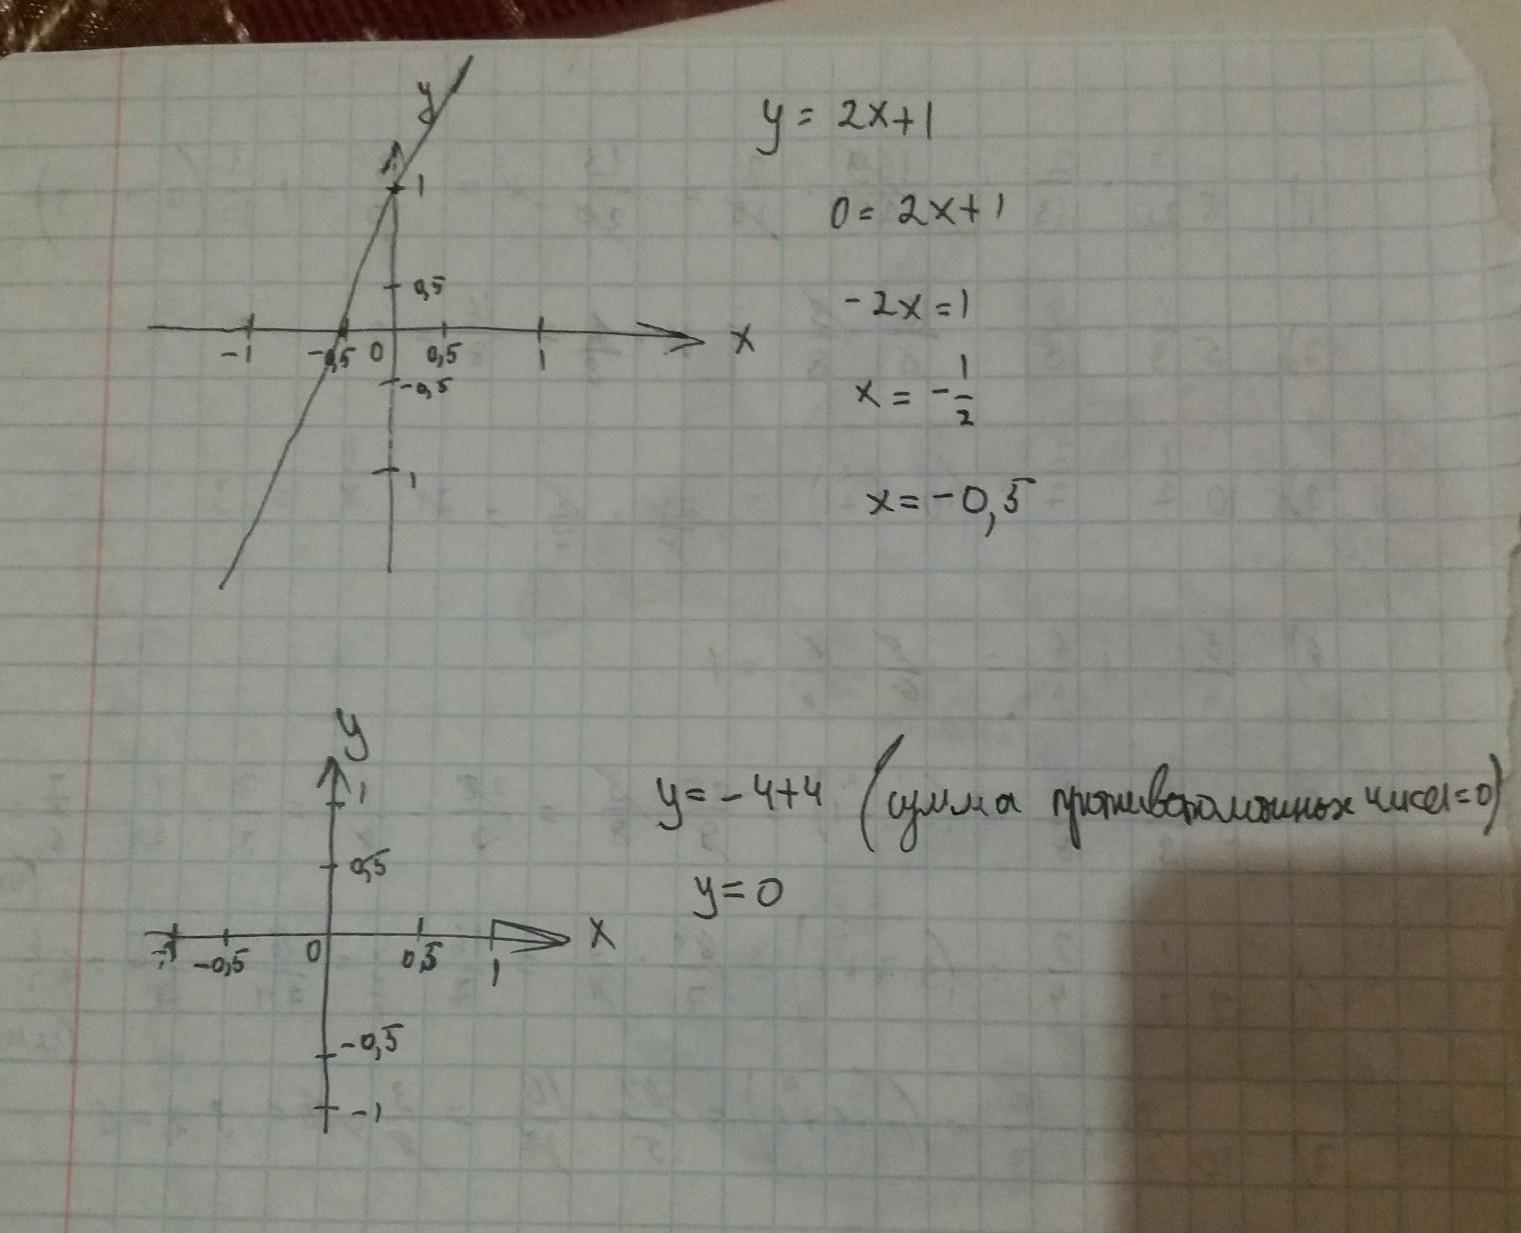 y
1
0,5
-1 -0,5 0 0,5 1 x
-0,5
1
y = 2x+1
0 = 2x+1
-2x = 1
x = -1/2
x = -0,5
y
1
0,5
-1 -0,5 0 0,5 1 x
-0,5
-1
y = -4+4 (сумма противоположных чисел=0)
y = 0